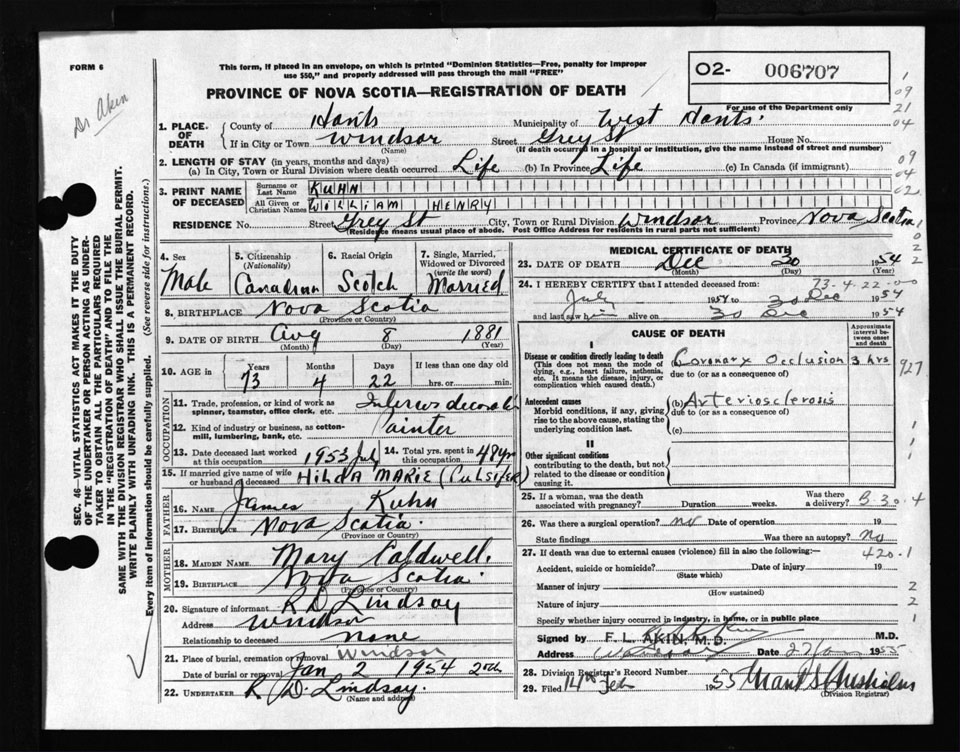 FORM 6
Dr Akin
This form, if placed in an envelope, on which is printed "Dominion Statistics—Free, penalty for improper
use $50," and properly addressed will pass through the mail "FREE"
PROVINCE OF NOVA SCOTIA—REGISTRATION OF DEATH
02- 006707
For use of the Department only
1. PLACE OF DEATH County of Hants Municipality of West Hants.
If in City or Town Windsor Street Grey St House No.
(Name) (If death occurred in a hospital or institution, give the name instead of street and number)
2. LENGTH OF STAY (in years, months and days)
(a) In City, Town or Rural Division where death occurred Life (b) In Province Life (c) In Canada (if immigrant)
3. PRINT NAME OF DECEASED Surname or Last Name KUHN
All Given or Christian Names WILLIAM HENRY
RESIDENCE No. Street Grey St City, Town or Rural Division Windsor Province Nova Scotia
(Residence means usual place of abode. Post Office Address for residents in rural parts not sufficient)
4. Sex Male
5. Citizenship (Nationality) Canadian
6. Racial Origin Scotch
7. Single, Married, Widowed or Divorced (write the word) Married
8. BIRTHPLACE Nova Scotia
(Province or Country)
9. DATE OF BIRTH Aug 8 1881
(Month) (Day) (Year)
10. AGE in Years 73 Months 4 Days 22 If less than one day old hrs. or min.
OCCUPATION
11. Trade, profession, or kind of work as spinner, teamster, office clerk, etc.
12. Kind of industry or business, as cotton-mill, lumbering, bank, etc. Painter
13. Date deceased last worked at this occupation 1953 July
14. Total yrs. spent in this occupation 48 yr
15. If married give name of wife or husband of deceased HILDA MARIE (CULSIFER)
FATHER
16. Name James Kuhn
17. Birthplace Nova Scotia.
(Province or Country)
MOTHER
18. MAIDEN NAME Mary Caldwell.
19. BIRTHPLACE Nova Scotia
(Province or Country)
20. Signature of informant R D Lindsay
Address Windsor
Relationship to deceased None
21. Place of burial, cremation or removal Windsor
Date of burial or removal Jan 2 1954
22. UNDERTAKER R. D. Lindsay.
(Name and address)
MEDICAL CERTIFICATE OF DEATH
23. DATE OF DEATH Dec 30 1954
(Month) (Day) (Year)
73-4-22-00
24. I HEREBY CERTIFY that I attended deceased from:
July 1954 to 30 Dec 1954
and last saw him alive on 30 Dec 1954
CAUSE OF DEATH
Approximate interval between onset and death
I
Disease or condition directly leading to death
(This does not mean the mode of dying, e.g., heart failure, asthenia, etc. It means the disease, injury, or complication which caused death).
(a) Coronary Occlusion 3 hrs
due to (or as a consequence of)
Antecedent causes
Morbid conditions, if any, giving rise to the above cause, stating the underlying condition last.
(b) Arteriosclerosis
due to (or as a consequence of)
(c)
II
Other significant conditions
contributing to the death, but not related to the disease or condition causing it.
25. If a woman, was the death associated with pregnancy? Duration weeks. Was there a delivery?
B-30-4
26. Was there a surgical operation? no Date of operation 19
State findings Was there an autopsy? No
420.1
27. If death was due to external causes (violence) fill in also the following:—
Accident, suicide or homicide? Date of injury 19
(State which)
Manner of injury
(How sustained)
Nature of injury
Specify whether injury occurred in industry, in home, or in public place
Signed by F. L. AKIN, M.D. M.D.
Address Date 1955
28. Division Registrar's Record Number
29. Filed 14th Feb 1955
(Division Registrar)
SEC. 46—VITAL STATISTICS ACT MAKES IT THE DUTY
OF THE UNDERTAKER OR PERSON ACTING AS UNDER-
TAKER TO OBTAIN ALL THE PARTICULARS REQUIRED
IN THE "REGISTRATION OF DEATH" AND TO FILE THE
SAME WITH THE DIVISION REGISTRAR WHO SHALL ISSUE THE BURIAL PERMIT.
WRITE PLAINLY WITH UNFADING INK. THIS IS A PERMANENT RECORD.
Every item of information should be carefully supplied. (See reverse side for instructions.)